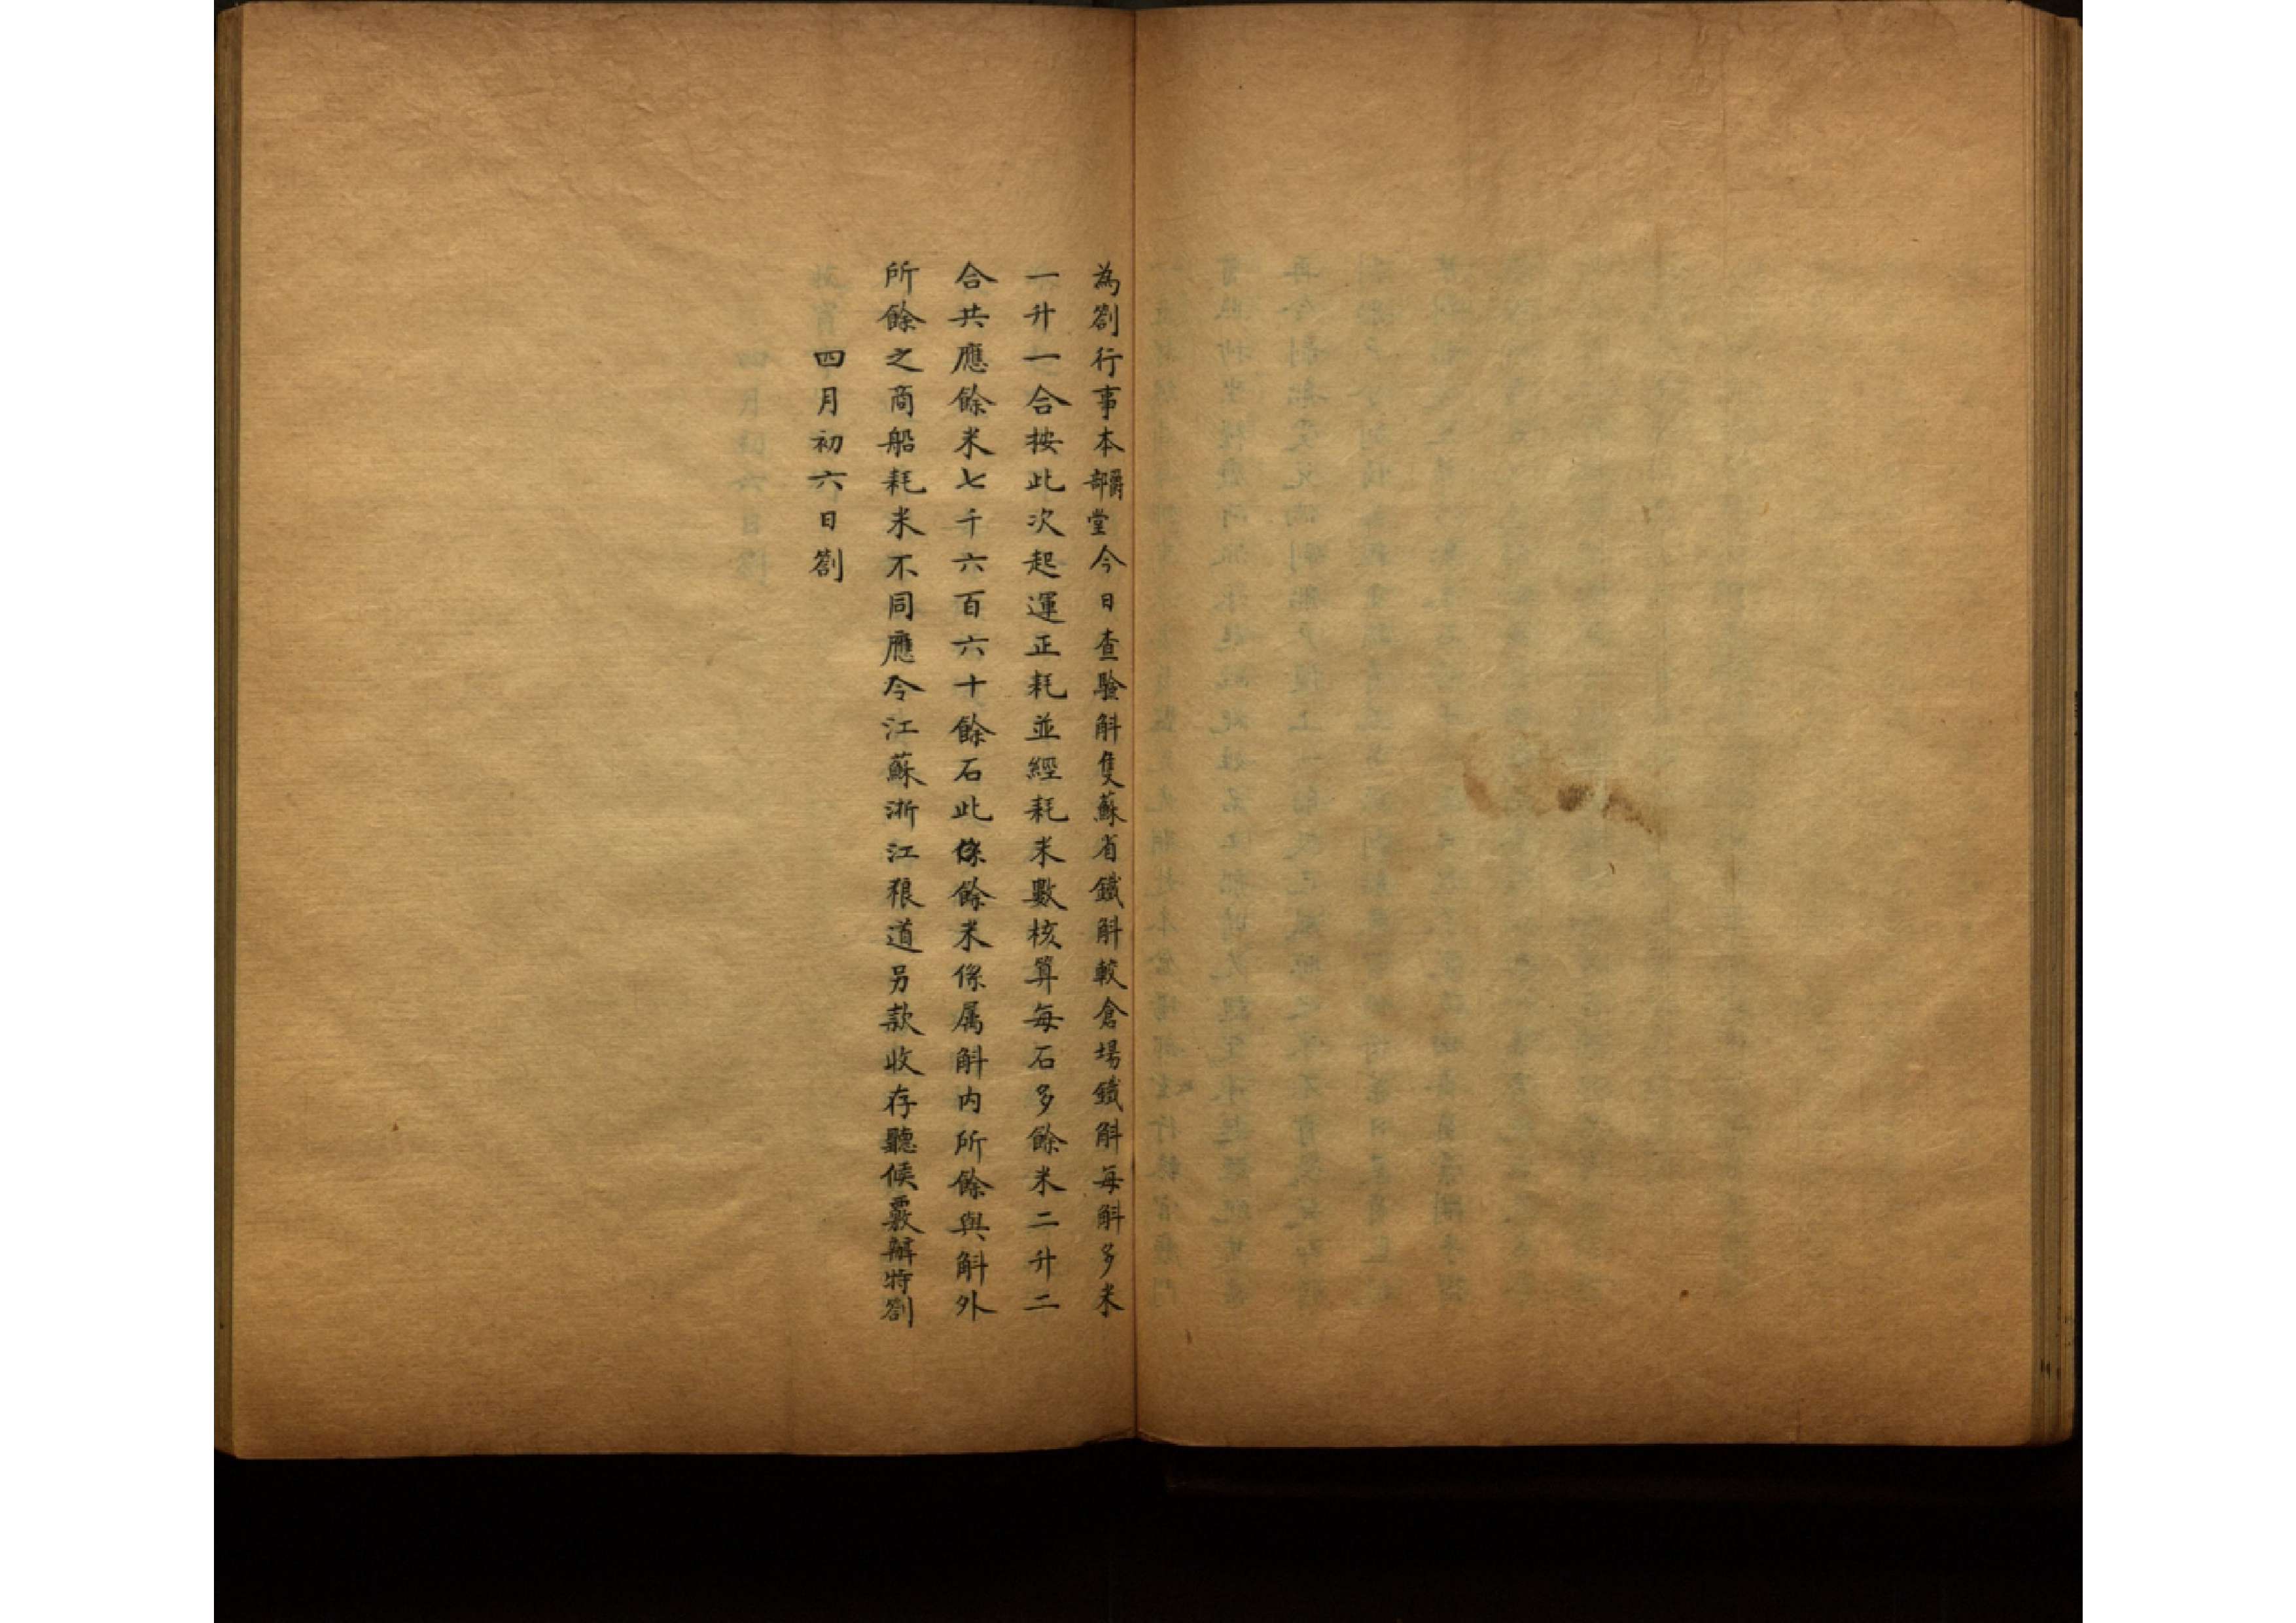 為劄行事本爵部堂今日查驗斛隻蘇省鐵斛較倉場鐵斛每斛多米
一升一合按此次起運正耗並經耗米數核算每石多餘米二升二
合共應餘米七千六百六十餘石此條餘米係属斛内所餘與斛外
所餘之商船耗米不同應令江蘇浙江粮道另款收存聽候覈辦特劄
四月初六日劄